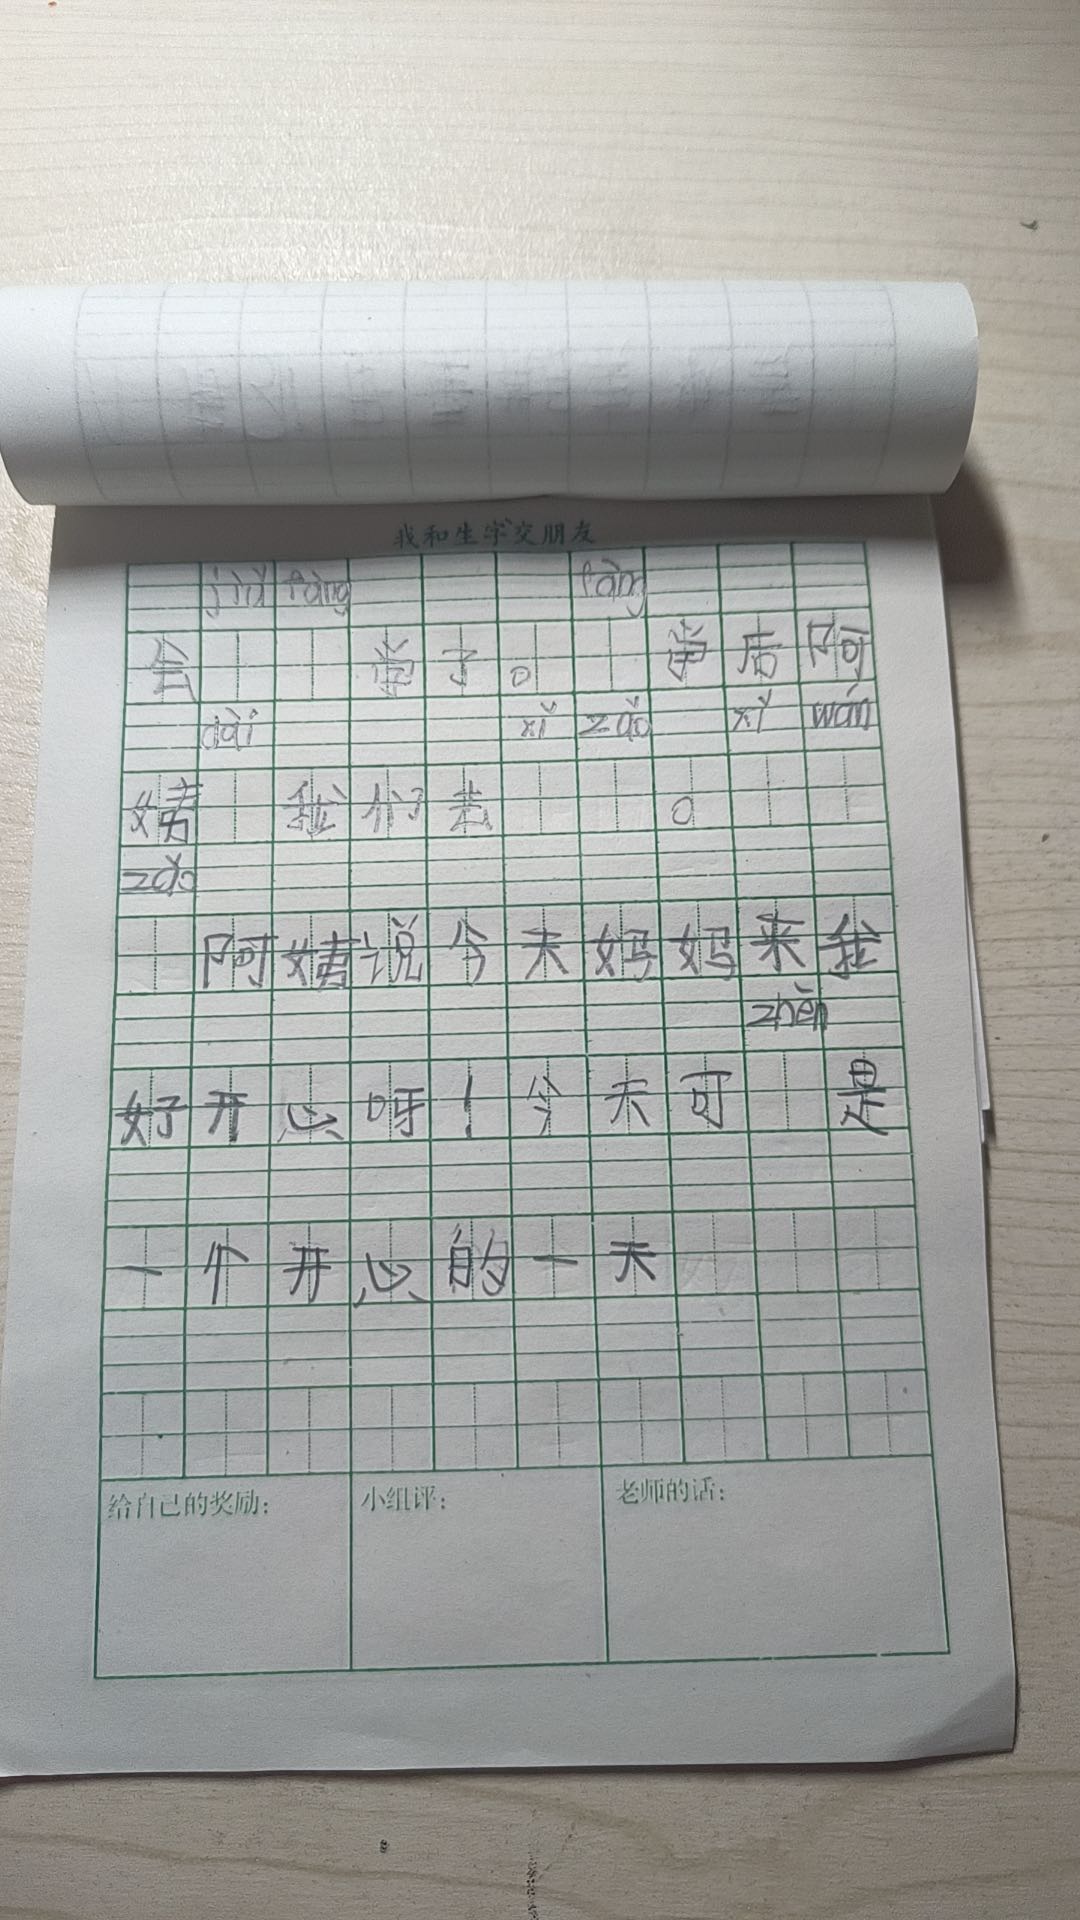 我和生字交朋友
jiù fàng fàng
会 学了。学后阿
dài xǐ zǎo xǐ wán
姨 我们去 。
zǎo
阿姨说今天妈妈来我
zhēn
好开心呀!今天可 是
一个开心的一天
给自己的奖励: 小组评: 老师的话: